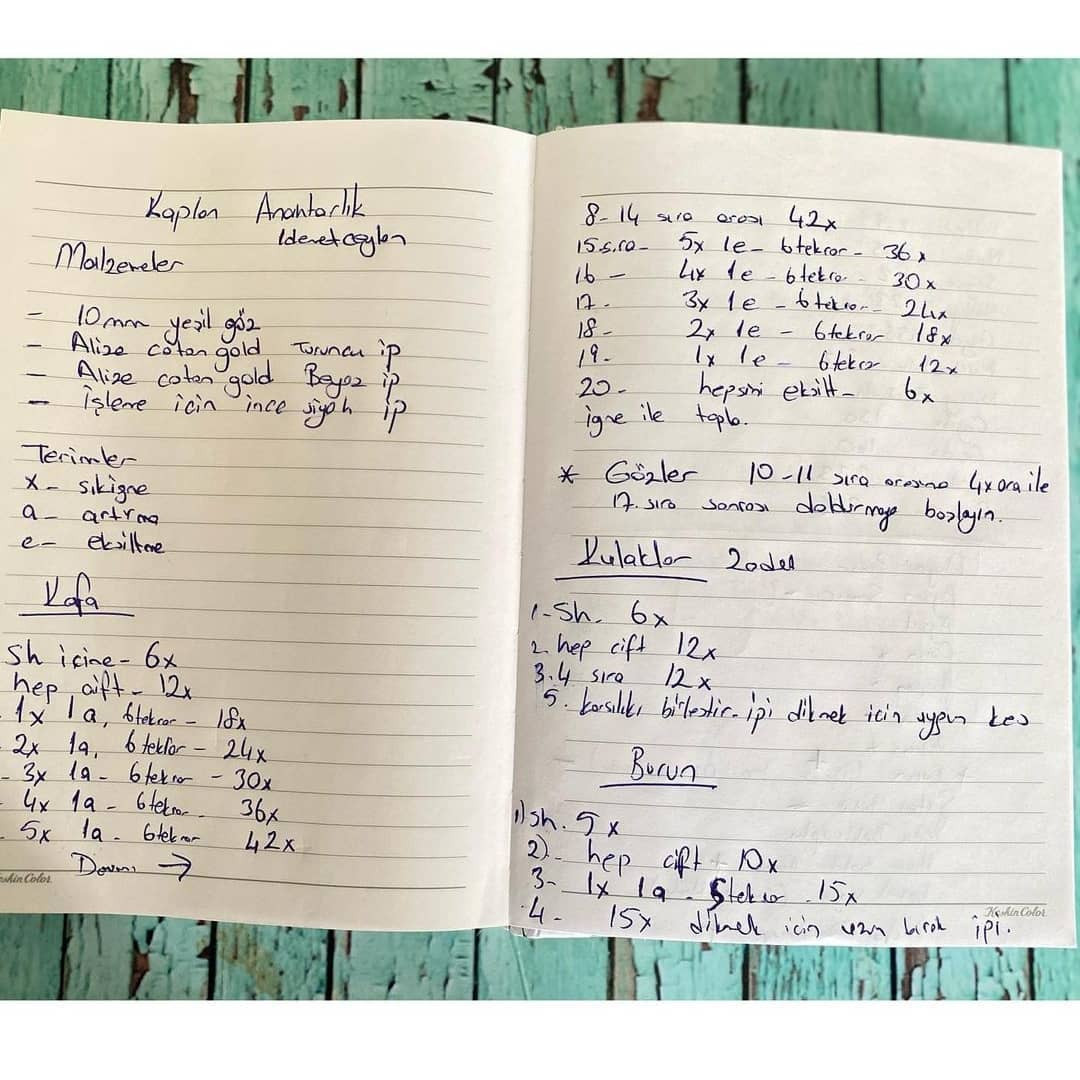 Kaplan Anahtarlık
Malzemeler
- 10mm yeşil göz
- Alize coton gold Turuncu ip
- Alize coton gold Beyaz ip
- İşleme için ince siyah ip
Terimler
x - sıkiğne
a - artırma
e - eksiltme
Kafa
sh içine - 6x
hep çift - 12x
- 1x 1a, 6tekrar - 18x
2x 1a, 6 tekrar - 24x
- 3x 1a - 6tekrar - 30x
- 4x 1a - 6tekrar - 36x
- 5x 1a - 6tekrar 42x
Devamı →
KeskinColor
8-14 sıra arası 42x
15.sıra - 5x 1e - 6tekrar - 36x
16 - 4x 1e - 6tekrar - 30x
17. 3x 1e - 6tekrar - 24x
18 - 2x 1e - 6tekrar 18x
19 - 1x 1e - 6tekrar 12x
20 - hepsini eksilt - 6x
iğne ile topla.
* Gözler 10-11 sıra arasına 4x ara ile
17. sıra sonrası doldurmaya başlayın.
Kulaklar 2adet
1- Sh. 6x
2. hep çift 12x
3.4 sıra 12x
5. karşılıklı birleştir. ipi dikmek için uygun kes
Burun
1) sh. 5x
2) - hep çift 10x
3 - 1x 1a - 5tekrar . 15x
4 - 15x dikmek için uzun bırak ipi.
KeskinColor